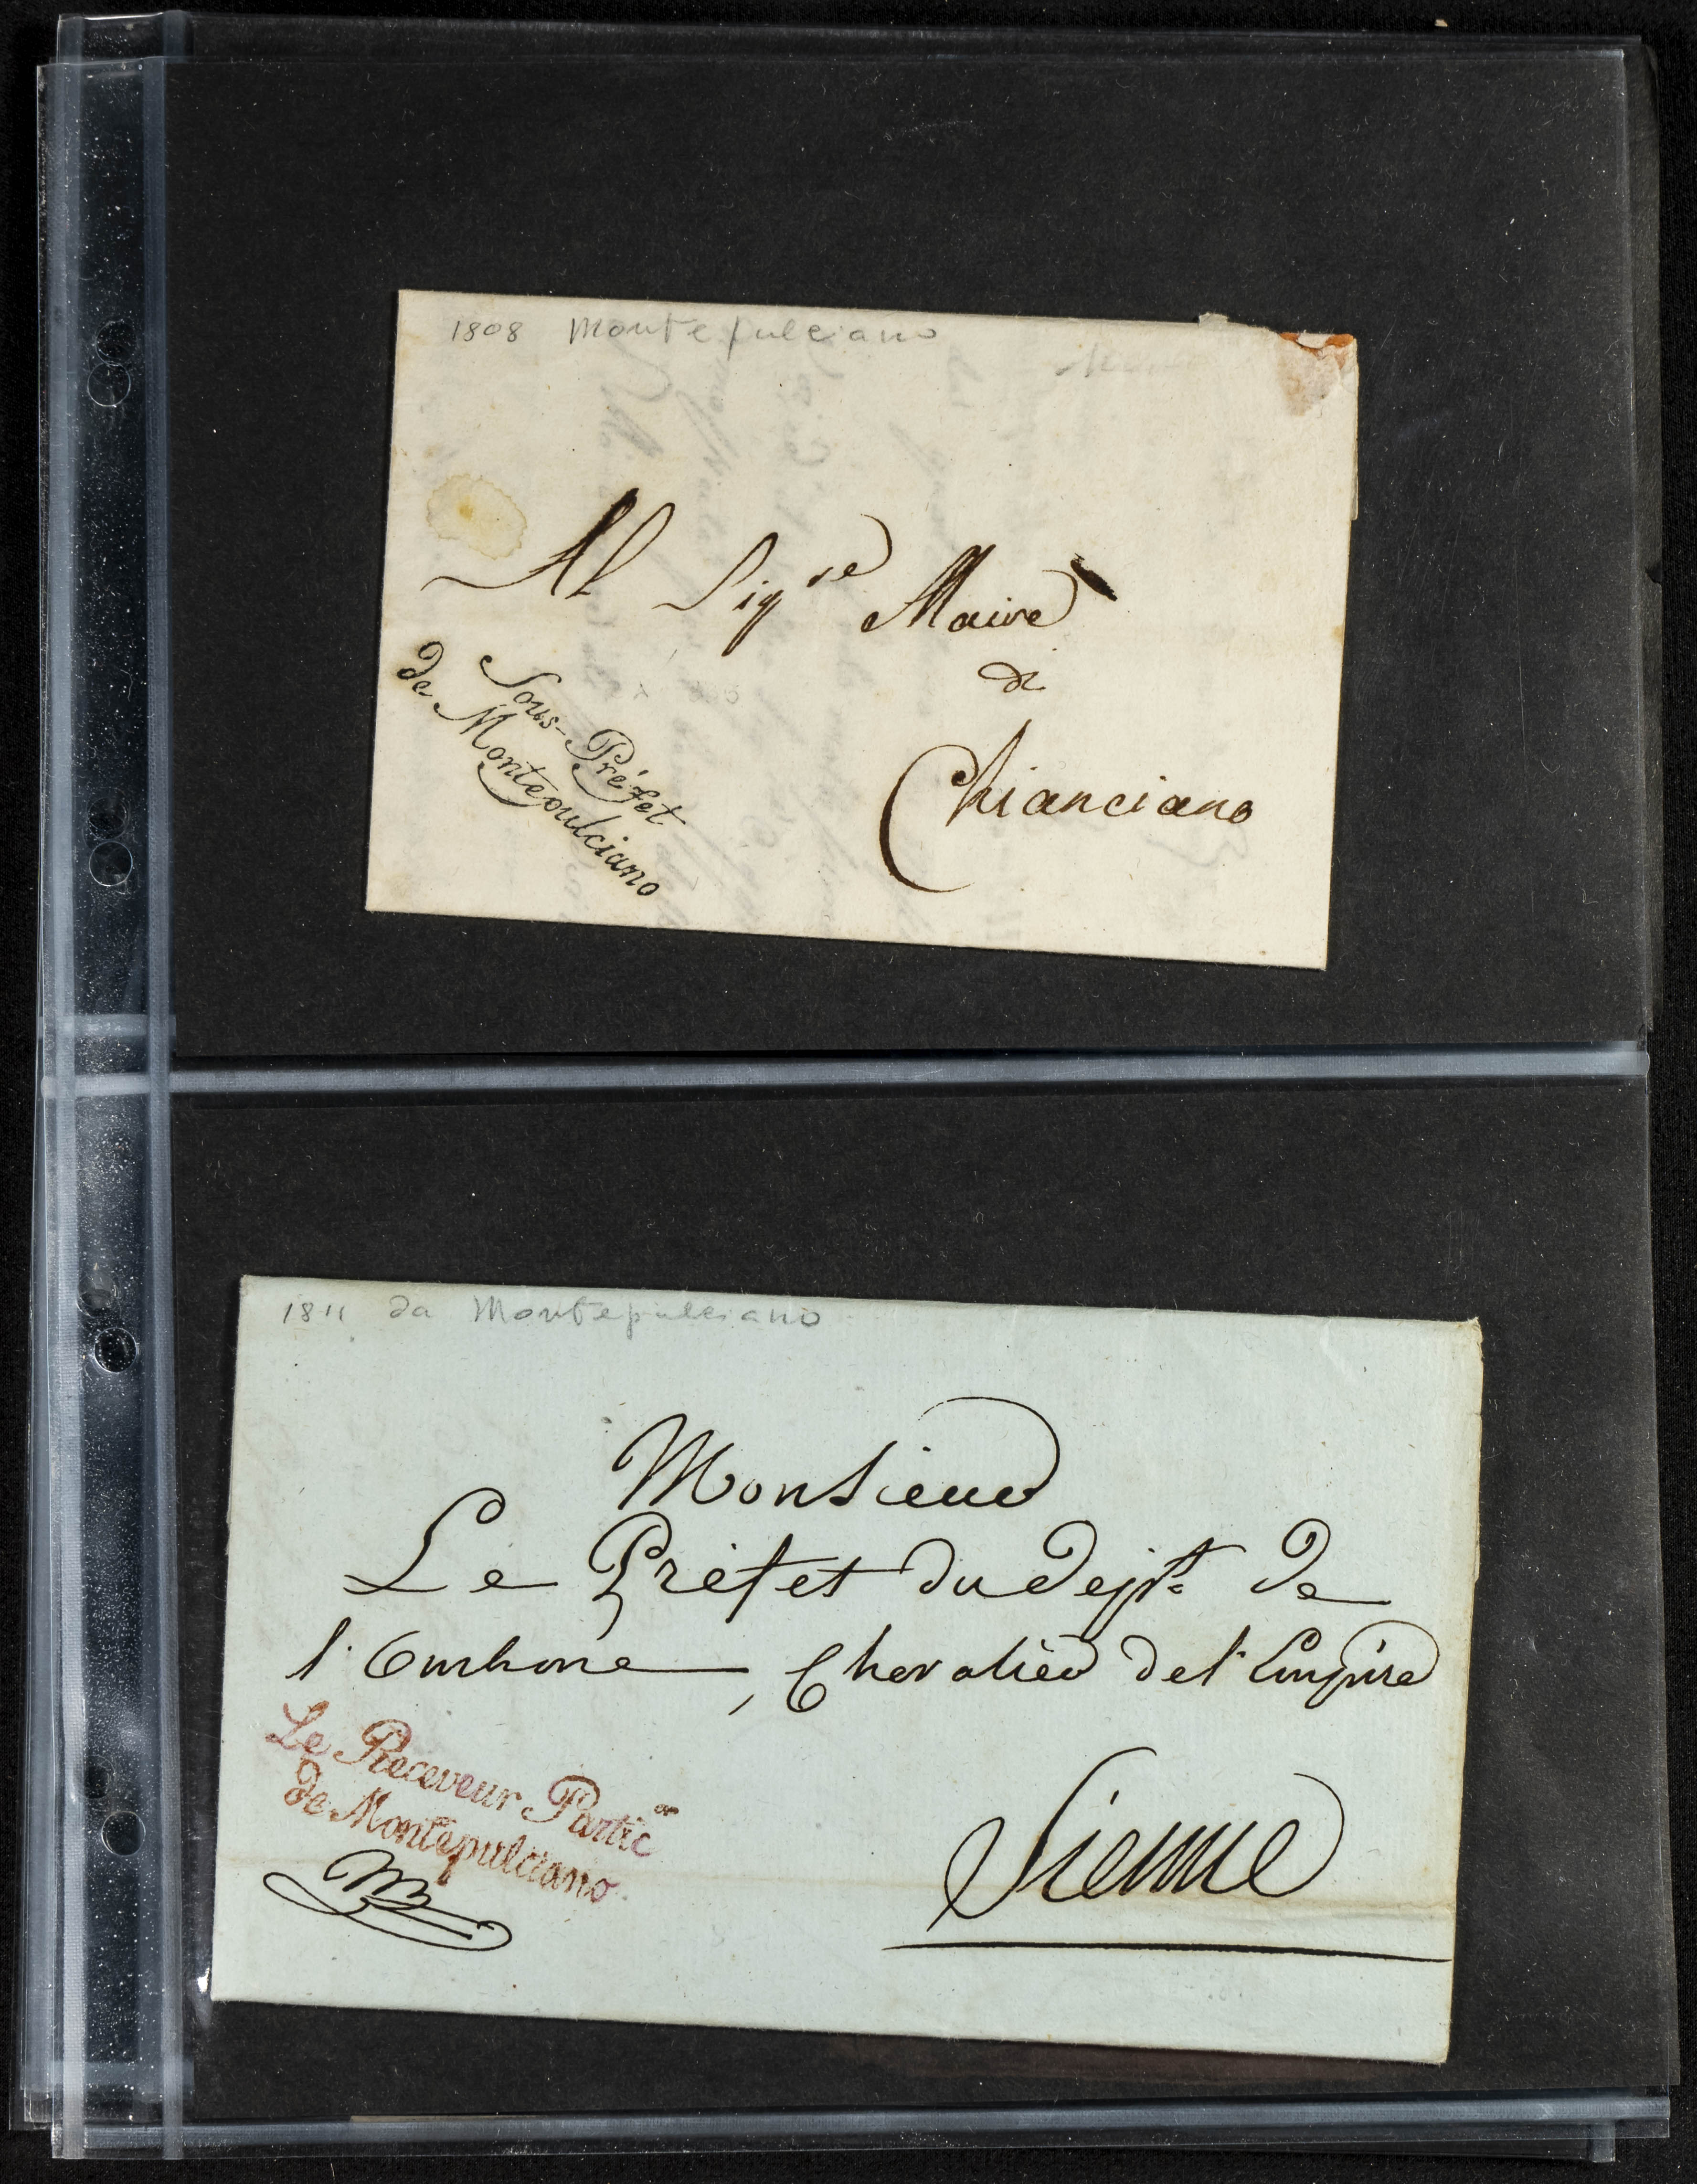 1808 Montepulciano
Al Sigre Maire
di
Chianciano
Sous-Préfet
de Montepulciano
1811 da Montepulciano
Monsieur
Le Préfet du Dept. de
l'Ombrone, Chevalier de l'Empire
Sienne
Le Receveur Partic.er
de Montepulciano